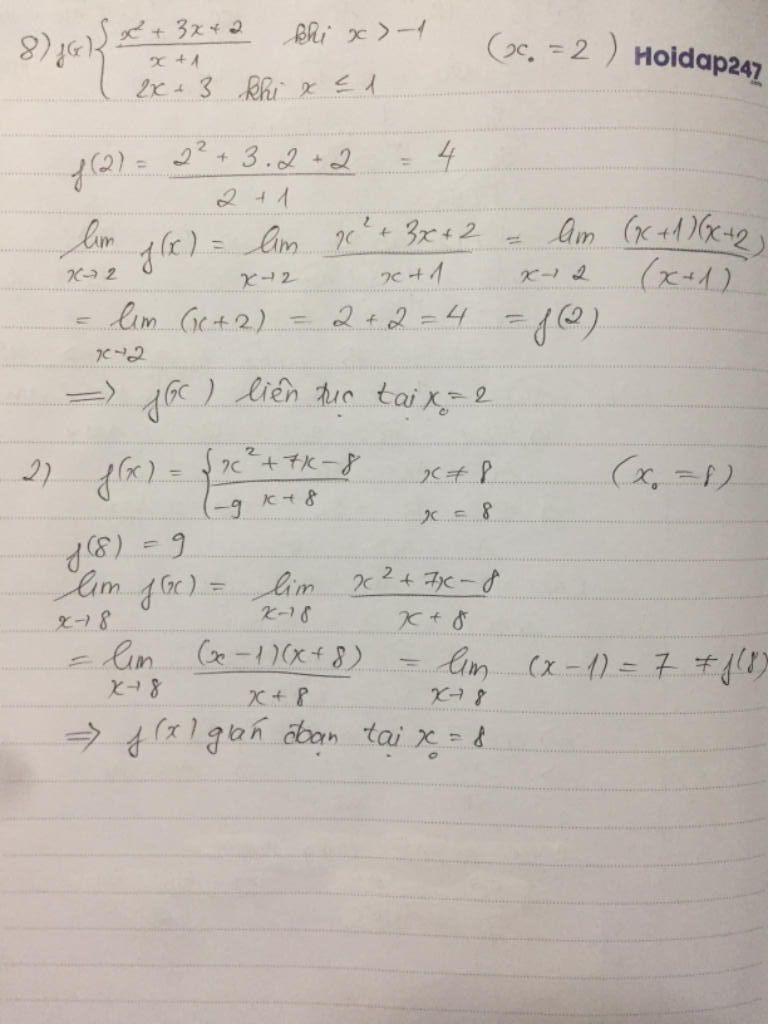 8) f(x) { x² + 3x + 2 / x + 1 khi x > -1 (x₀ = 2) Hoidap247.com
2x + 3 khi x ≤ 1
f(2) = 2² + 3.2 + 2 / 2 + 1 = 4
lim x→2 f(x) = lim x→2 x² + 3x + 2 / x + 1 = lim x→2 (x+1)(x+2) / (x+1)
= lim x→2 (x+2) = 2 + 2 = 4 = f(2)
=> f(x) liên tục tại x₀ = 2
2) f(x) = { x² + 7x - 8 / x + 8 x ≠ 8 (x₀ = 8)
-9 x = 8
f(8) = 9
lim x→8 f(x) = lim x→8 x² + 7x - 8 / x + 8
= lim x→8 (x-1)(x+8) / x + 8 = lim x→8 (x-1) = 7 ≠ f(8)
=> f(x) gián đoạn tại x₀ = 8